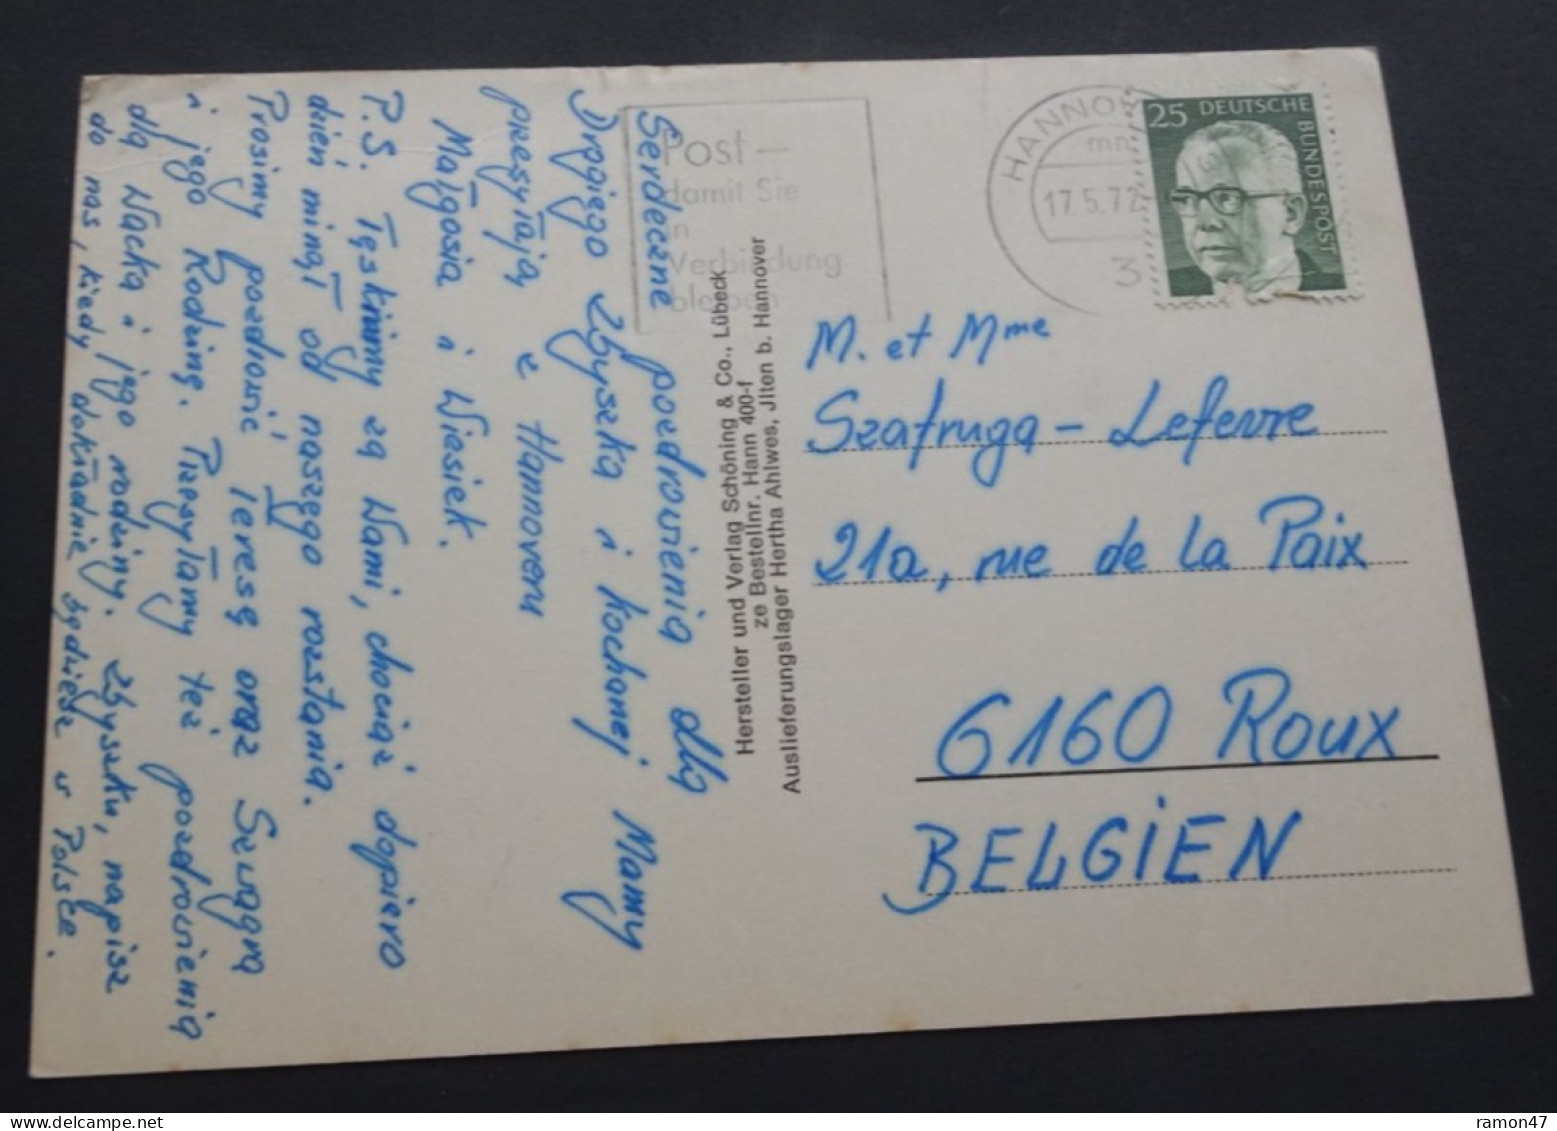 Serdeczne pozdrowienia dla
Drogiego Zbyszka i kochanej Mamy
przesyłają z Hannoveru
Małgosia i Wiesiek.
P.S. Tęsknimy za Wami, chociaż dopiero
dzień minął od naszego rozstania.
Prosimy pozdrowić Teresę oraz Szwagra
i jego Rodzinę. Przesyłamy też pozdrowienia
dla Wacka i jego rodziny. Zbyszku, napisz
do nas, kiedy dokładnie będziesz w Polsce.
Post –
damit Sie
in
Verbindung
bleiben
Hersteller und Verlag Schöning & Co., Lübeck
ze Bestellnr. Hann 400-f
Auslieferungslager Hertha Ahlwes, Jlten b. Hannover
HANNO
mm
17.5.72
3
25 DEUTSCHE BUNDESPOST
M. et Mme
Szafruga - Lefevre
21a, rue de la Paix
6160 Roux
BELGIEN
ramon47